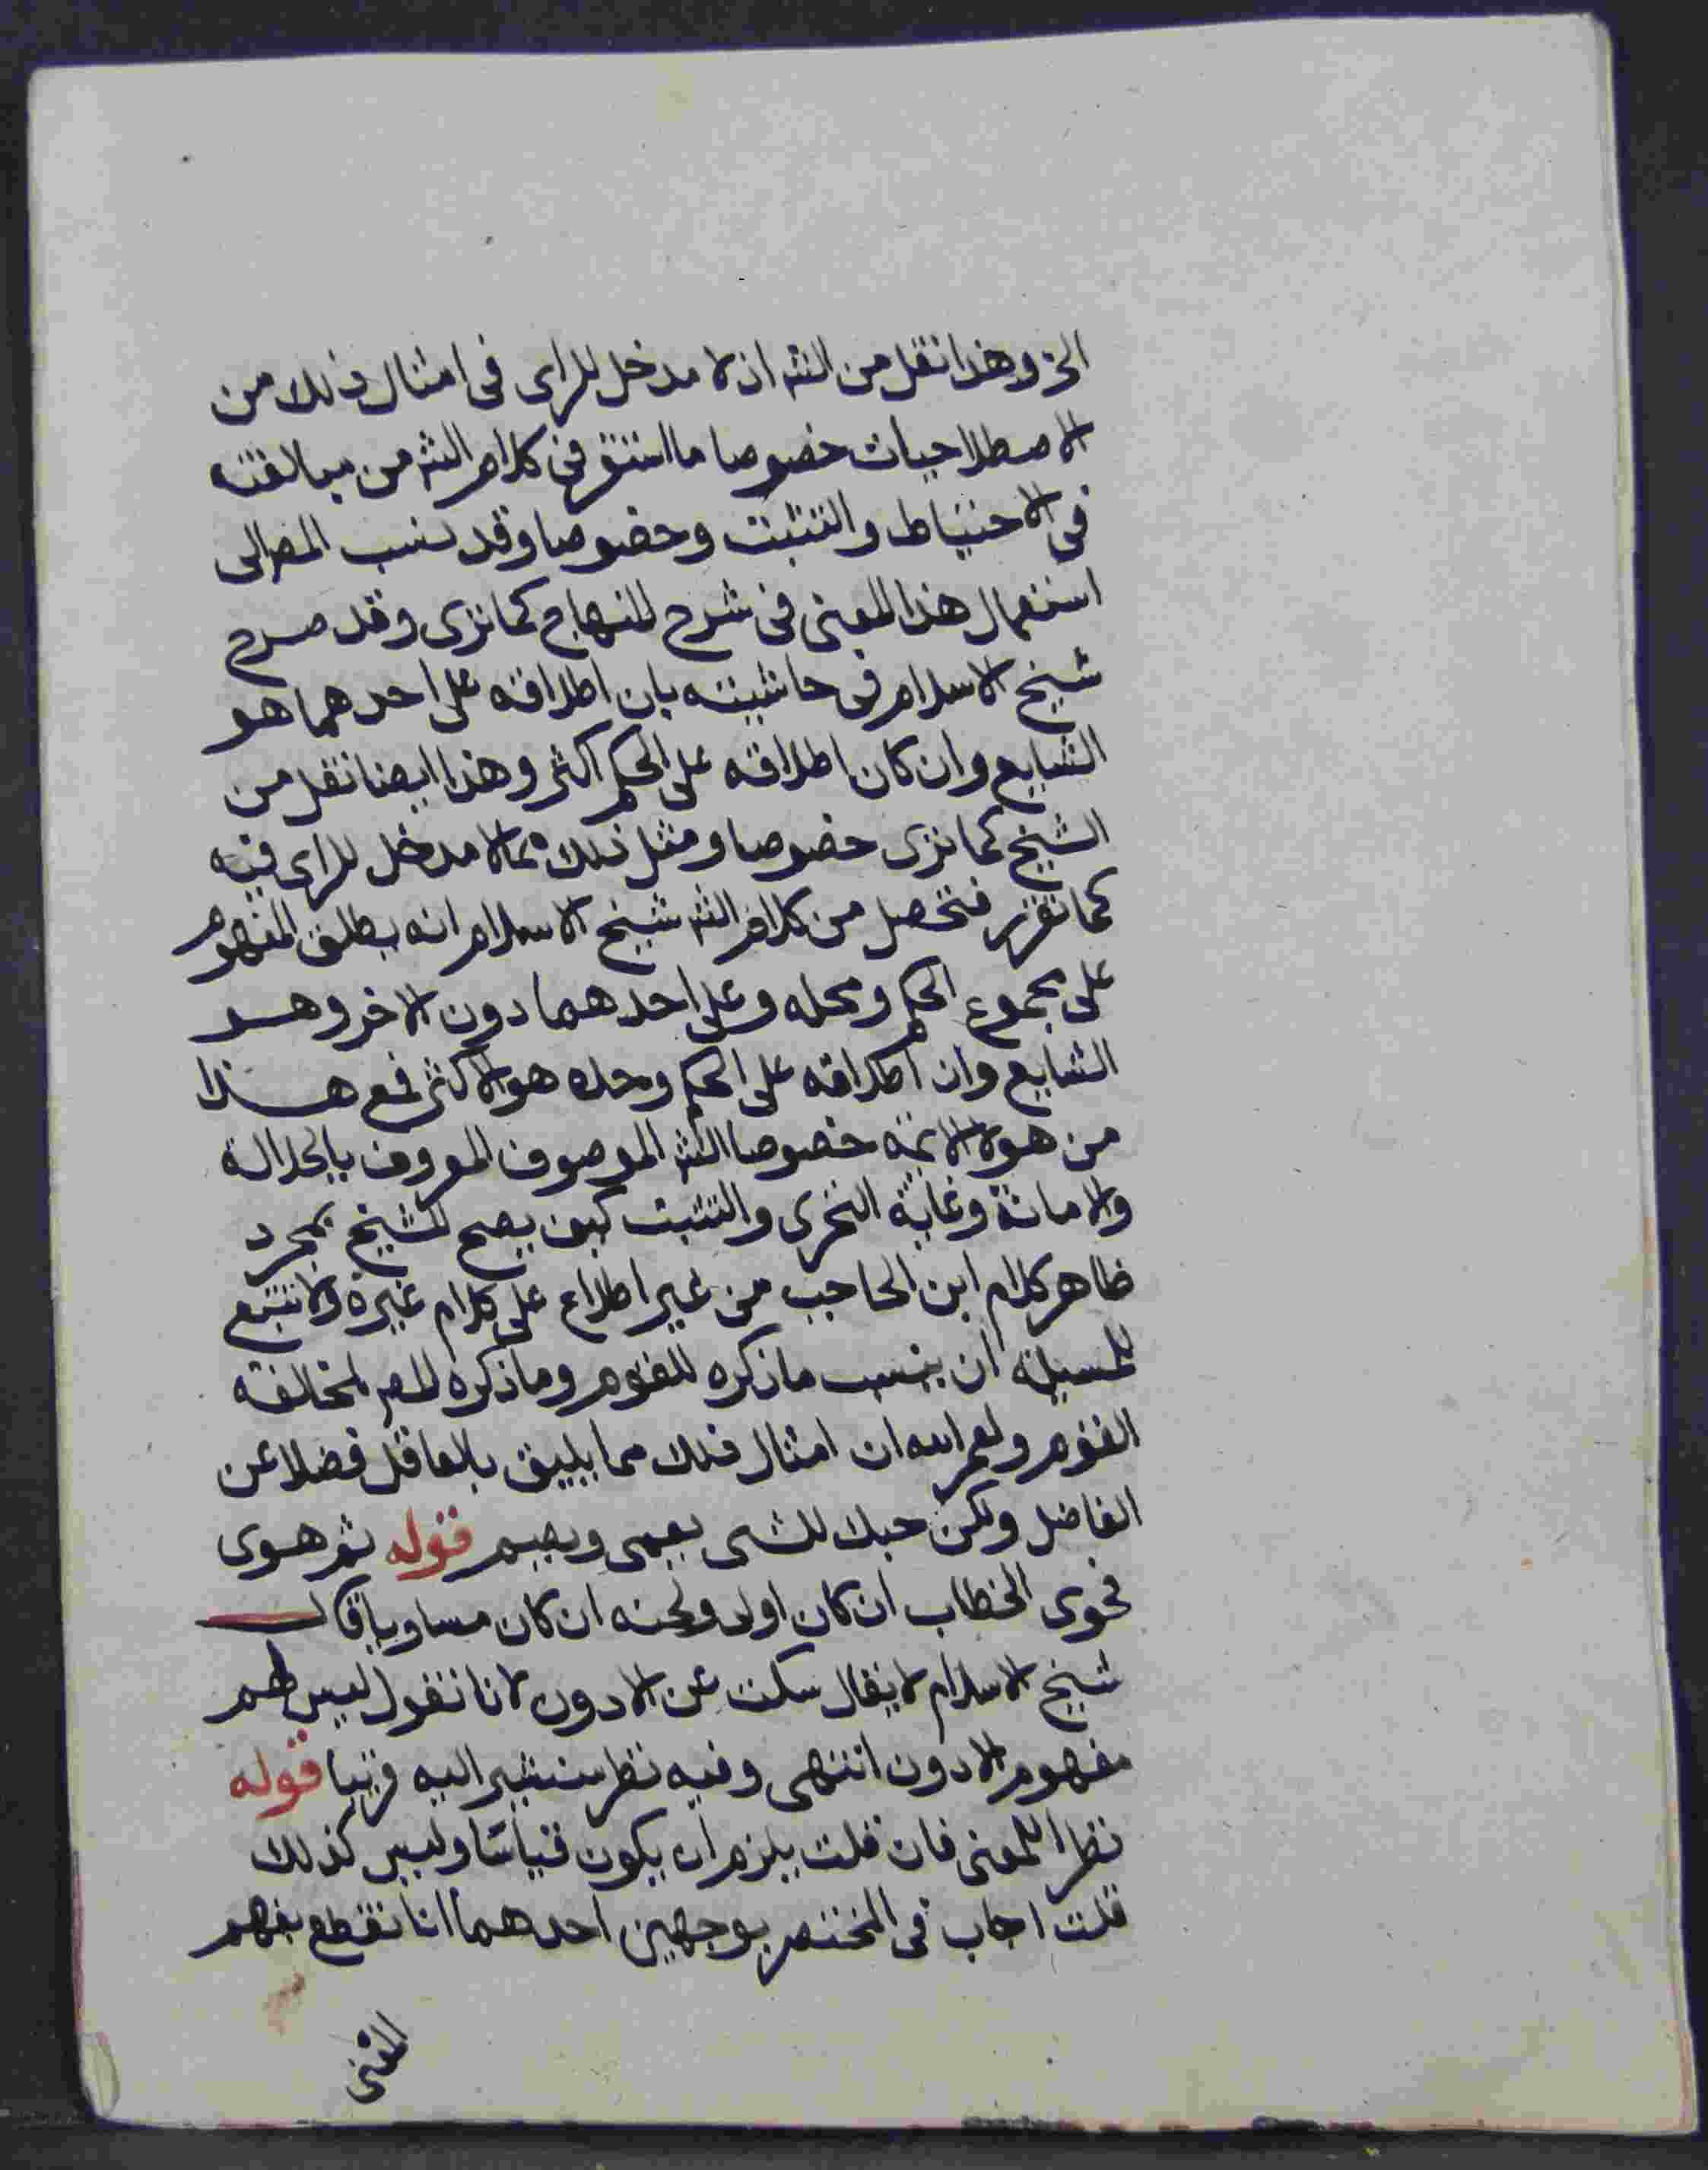 الخ وهذا نقل من الثقه اذ لا مدخل للراى فى امثال ذلك من
الاصطلاحيات خصوصا ما استقر فى كلام الشه من مبالغته
فى الاحتياط والتثبت وخصوصا وقد نسب المص الى
استعمال هذا المعنى فى شرح المنهاج كما ترى وقد صرح
شيخ الاسلام فى حاشيته بان اطلاقه على احدهما هو
الشايع وان كان اطلاقه على الحكم اكثر وهذا ايضا نقل من
الشيخ كما ترى خصوصا ومثل ذلك مما لا مدخل للراى فيه
كما تقرر فتحصل من كلام الشه شيخ الاسلام انه يطلق المفهوم
على مجموع الحكم ومحله وعلى احدهما دون الاخر وهو
الشايع وان اطلاقه على الحكم وحده هو الاكثر فمع هذا
من هولا الائمه خصوصا الشه الموصوف المعروف بالجلالة
والامانة وغاية التحرى والتثبت كيف يصح للشيخ بمجرد
ظاهر كلام ابن الحاجب من غير اطلاع على كلام غيره ولا تتبع
للمسيلة ان ينسب ما ذكره للقوم وما ذكره المص لمخالفة
القوم ولعمر الله ان امثال ذلك مما يليق بالعاقل فضلا عن
الفاضل ولكن حبك للشى يعمى ويصم قوله ثم هوى
فحوى الخطاب ان كان اولى ولحنه ان كان مساويا قال
شيخ الاسلام لا يقال سكت عن الادون لانا نقول ليس لهم
مفهوم الادون انتهى وفيه نظر سنشير اليه قريبا قوله
نظرا للمعنى فان قلت يلزم ان يكون قياسا وليس كذلك
قلت اجاب فى المختصر بوجهين احدهما انا نقطع بفهم
المعنى